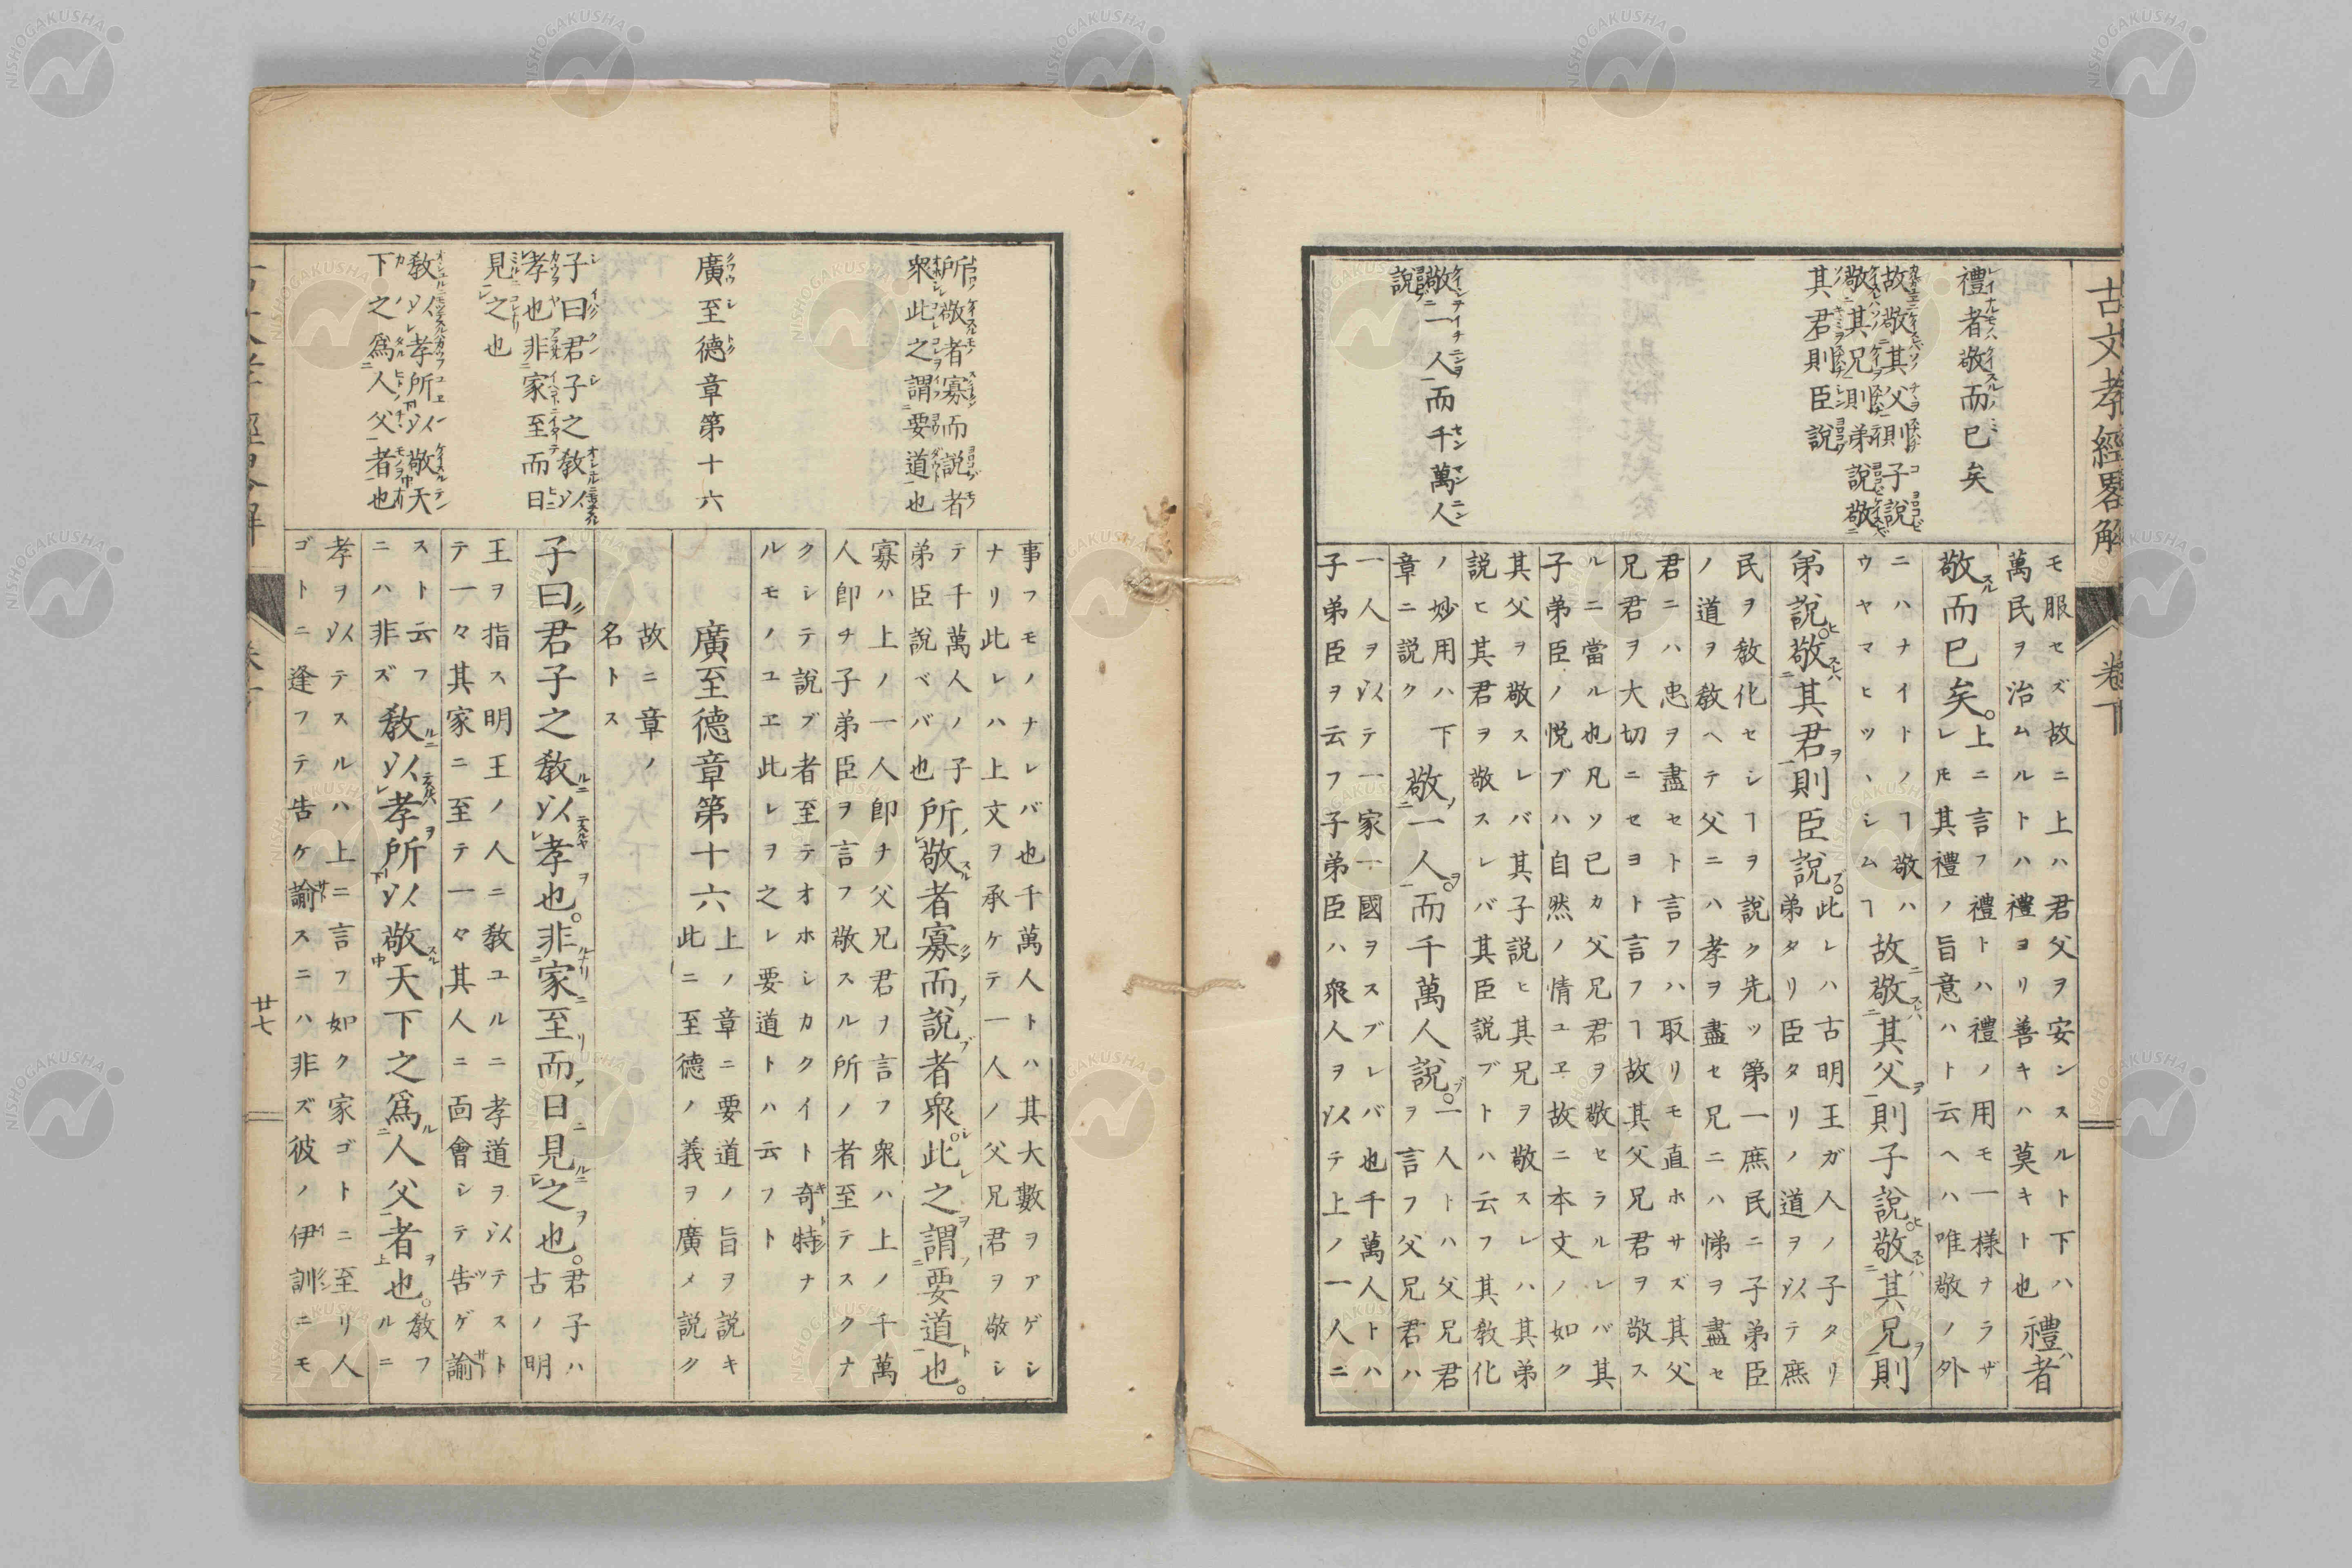 古文孝經畧解 卷下
禮者敬而已矣
故敬其父則子説
敬其兄則弟説敬
其君則臣説
敬一人而千萬人
説
モ服セズ故ニ上ハ君父ヲ安ンスルト下ハ
萬民ヲ治ムルトハ禮ヨリ善キハ莫キト也
禮者
敬而已矣。
上ニ言フ禮トハ禮ノ用モ一様ナラザ
レ𪜈其禮ノ旨意ハト云ヘハ唯敬ノ外
ニハナイトノヿ敬ハ
ウヤマヒツヽシムヿ
故敬其父則子説敬其兄則
弟説敬其君則臣説。
此レハ古明王ガ人ノ子タリ
弟タリ臣タリノ道ヲ以テ庶
民ヲ敎化セシヿヲ説ク先ッ第一庶民ニ子弟臣
ノ道ヲ敎ヘテ父ニハ孝ヲ盡セ兄ニハ悌ヲ盡セ
君ニハ忠ヲ盡セト言フハ取リモ直ホサズ其父
兄君ヲ大切ニセヨト言フヿ故其父兄君ヲ敬ス
ルニ當ル也凡ソ已カ父兄君ヲ敬セラルレバ其
子弟臣ノ悦ブハ自然ノ情ユヱ故ニ本文ノ如ク
其父ヲ敬スレバ其子説ヒ其兄ヲ敬スレハ其弟
説ヒ其君ヲ敬スレバ其臣説ブトハ云フ其敎化
ノ妙用ハ下
章ニ説ク
敬一人而千萬人説。
一人トハ父兄君
ヲ言フ父兄君ハ
一人ヲ以テ一家一國ヲスブレバ也千萬人トハ
子弟臣ヲ云フ子弟臣ハ衆人ヲ以テ上ノ一人ニ
所敬者寡而説者
衆此之謂要道也
廣至德章第十六
子曰君子之敎以
孝也非家至而日
見之也
敎以孝所以敬天
下之爲人父者也
事フモノナレバ也千萬人トハ其大數ヲアゲシ
ナリ此レハ上文ヲ承ケテ一人ノ父兄君ヲ敬シ
テ千萬人ノ子
弟臣説ベバ也
所敬者寡而説者衆。此之謂要道也。
寡ハ上ノ一人卽ナ父兄君ヲ言フ衆ハ上ノ千萬
人卽チ子弟臣ヲ言フ敬スル所ノ者至テスクナ
クシテ説ブ者至テオホシカクイト奇特ナ
ルモノユヱ此レヲ之レ要道トハ云フト
廣至德章第十六
上ノ章ニ要道ノ旨ヲ説キ
此ニ至德ノ義ヲ廣メ説ク
故ニ章ノ
名トス
子曰君子之敎以孝也。非家至而日見之也。
君子ハ
古ノ明
王ヲ指ス明王ノ人ニ敎ユルニ孝道ヲ以テスト
テ一々其家ニ至テ一々其人ニ面會シテ告ゲ諭
スト云フ
ニハ非ズ
敎以孝所以敬天下之爲人父者也。
敎フ
ルニ
孝ヲ以テスルハ上ニ言フ如ク家ゴトニ至リ人
ゴトニ逢フテ告ケ諭スニハ非ズ彼ノ伊訓ニモ
廿七